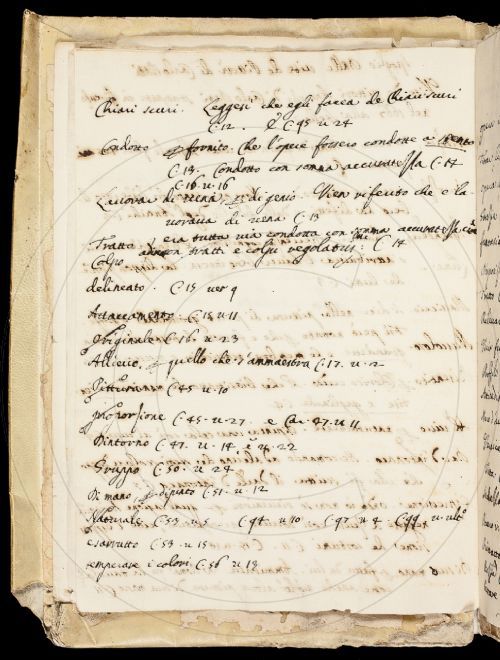 Chiari scuri. Leggesi che egli facea de Chiari scuri
C. 12. E C. 95 u. 24
Condotto p fornito. Che l'opre fossero condotte a
C. 13. Condotto con somma accuratezza C. 14
C. 16. u. 16
Lavorar di vena, p di genio. Vien riferito che e la-
vorava di vena C. 13
Tratto era tutta via condotta con somma accuratezza
Colpo con tratti e colpi regolatis:mi C. 14
delineato. C. 15 ver 9
Attaccamento. C. 15. u. 11
Originale C. 16. u. 23
Allievo, p quello che s'ammaestra C. 17. u. 2
Pittoriamo C. 45 u. 10
proporsione C. 45. u. 27. e Car. 47. u. 11
Dintorno C. 47. u. 14. e u. 22
Gruppo C. 50. u. 24
Di mano, p dipinto C. 51. u. 12
Naturale C. 53. u. 5. C. 94 u. 10 C. 97 u. 4. C. 99. u. ult:o
C. 53. u. 15
temperare i colori C. 56 u. 18